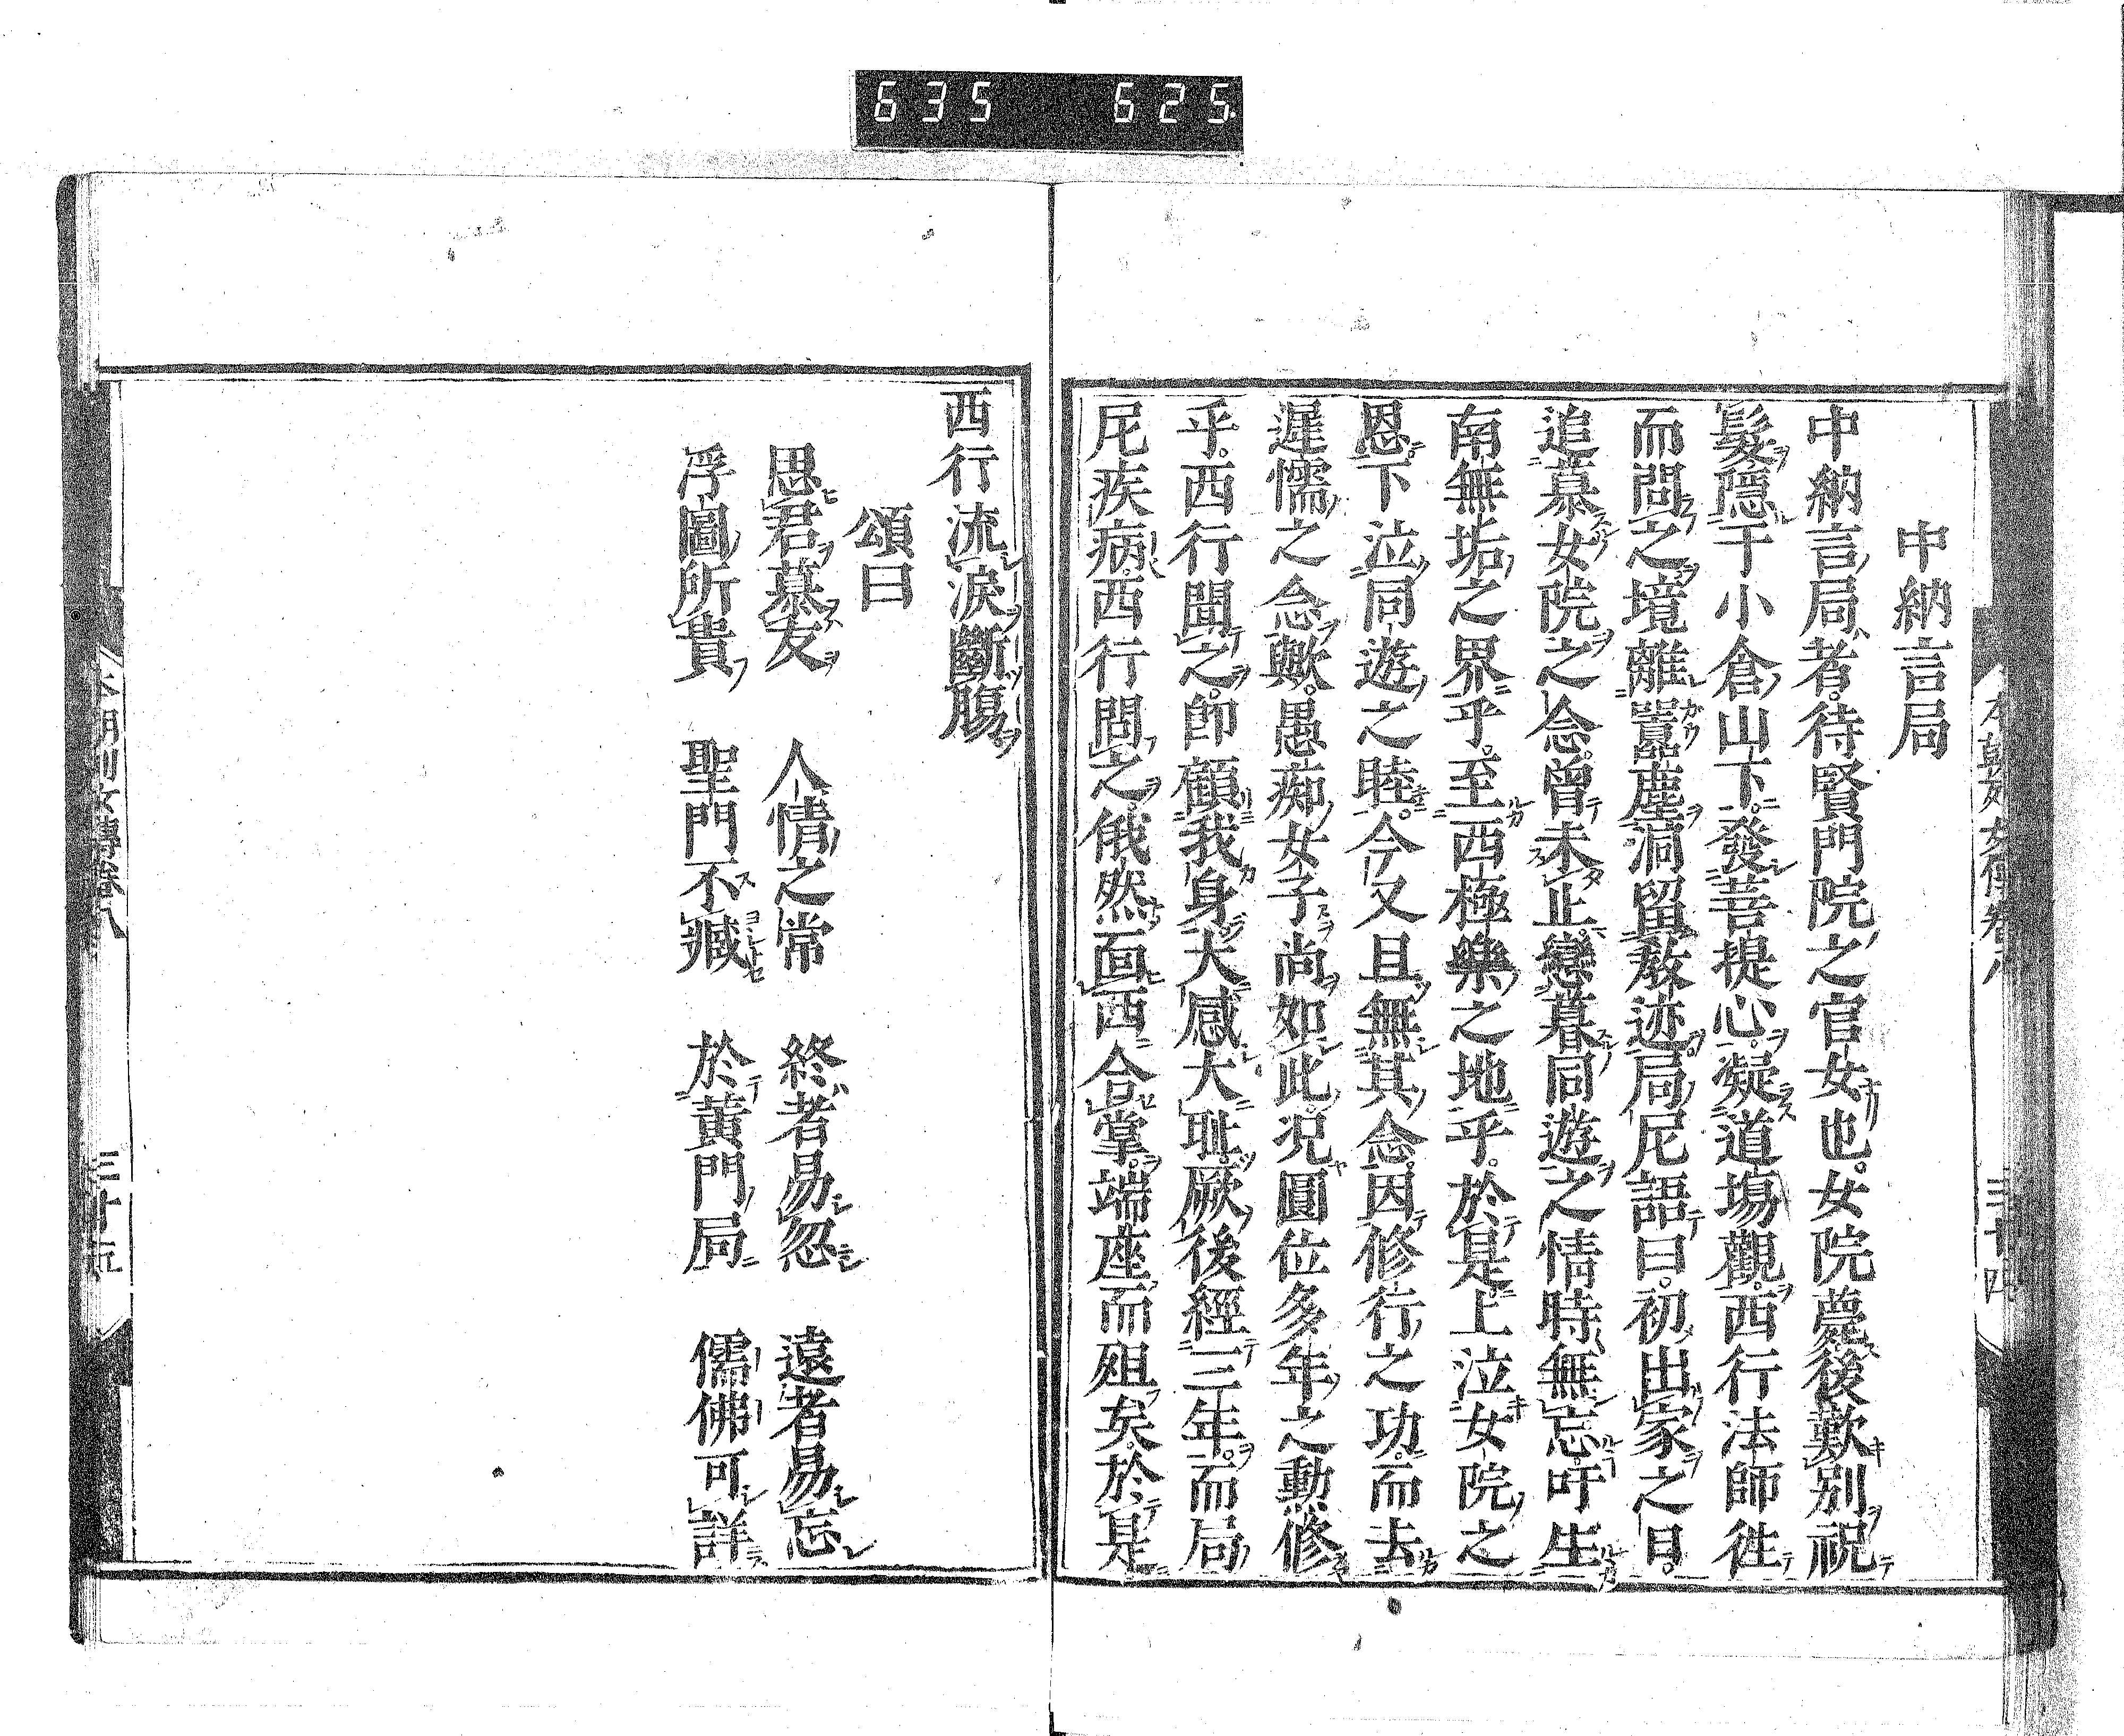 635 625
中納言局
中納言局者。待賢門院之官女也。女院薨後歎別祝
髮隱于小倉山下。發菩提心。凝道場觀。西行法師徃
而問之境離囂塵洞留敎迹。局尼語曰。初出家之日。
追慕女院之念。曾未止。戀暮同遊之情時無忘吁生
南無垢之界乎。至西極樂之地乎。於是上泣女院之
恩。下泣同遊之睦。今又且無其念。因修行之功。而去
遲懦之念歟。愚痴女子尚如此。况圓位多年之勳修
乎。西行聞之。卽顧我身大感大耻。厥後經三年。而局
尼疾病。西行問之。俄然面西合掌。端座而殂矣。於是
西行流淚斷膓
頌曰
思君慕友 人情之常 終者易忽 遠者易忘
浮圖所貴 聖門不臧 於黃門局 儒佛可詳